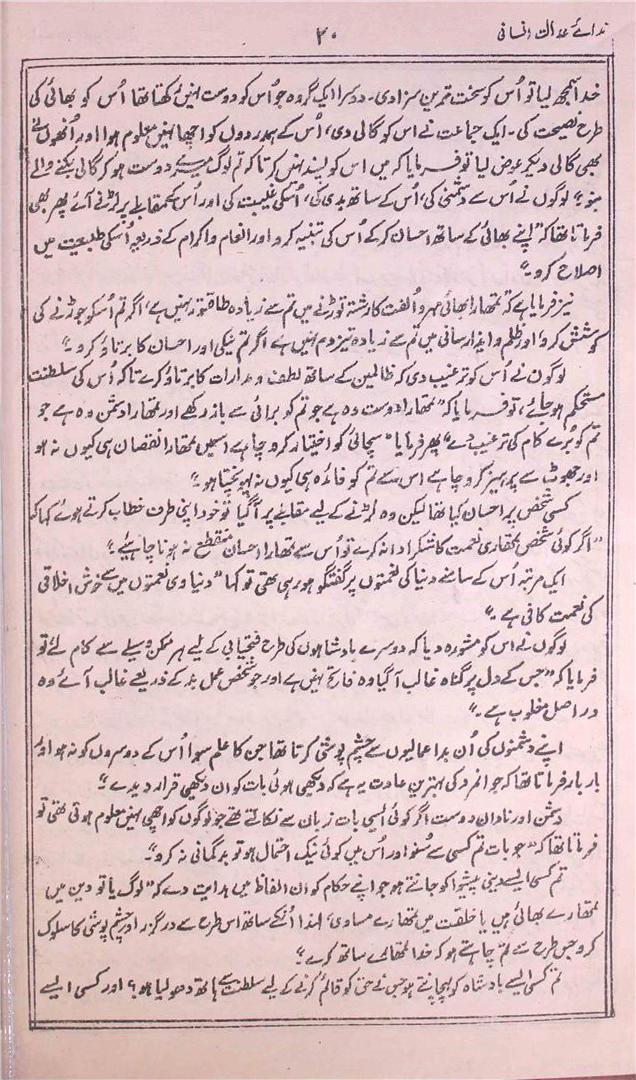 ندائے عدالت انسانی
۲۰
خدا سمجھ لیا تو اُس کو سخت ترین سزا دی۔ دوسرا ایک گروہ جو اُس کو دوست نہیں رکھتا تھا اُس کو بھائی کی
طرح نصیحت کی۔ ایک جماعت نے اس کو گالی دی، اُس کے ہمدردوں کو اچھا نہیں معلوم ہوا اور اُنھوں نے
بھی گالی دیکر عوض لیا تو فرمایا کہ میں اس کو پسند نہیں کرتا کہ تم لوگ میرے دوست ہو کر گالی بکنے والے
بنو“؛ لوگوں نے اُس سے دشمنی کی، اُس کے ساتھ بدی کی، اُسکی غیبت کی اور اُس کے مقابلے پر لڑنے آئے پھر بھی
فرماتا تھا کہ ”اپنے بھائی کے ساتھ احسان کرکے اُس کی تنبیہ کرو اور انعام و اکرام کے ذریعہ اُسکی طبیعت میں
اصلاح کرو“۔
نیز فرمایا ہے کہ تمھارا بھائی مہر و اُلفت کا رشتہ توڑنے میں تم سے زیادہ طاقتور نہیں ہے، اگر تم اُسکو جوڑنے کی
کوشش کرو، اور ظلم و ایذا رسانی میں تم سے زیادہ تیز دم نہیں ہے اگر تم نیکی اور احسان کا برتاؤ کرو“۔
لوگوں نے اُس کو ترغیب دی کہ ظالمین کے ساتھ لطف و مدارات کا برتاؤ کرے تاکہ اُس کی سلطنت
مستحکم ہو جائے، تو فرمایا کہ ”تمھارا دوست وہ ہے جو تم کو برائی سے باز رکھے اور تمھارا دشمن وہ ہے جو
تم کو بُرے کام کی ترغیب دے“ پھر فرمایا ”سچائی کو اختیار کرو چاہے اسمیں تمھارا نقصان ہی کیوں نہ ہو
اور جھوٹ سے پرہیز کرو چاہے اس سے تم کو فائدہ ہی کیوں نہ پہونچتا ہو“۔
کسی شخص پر احسان کیا تھا لیکن وہ لڑنے کے لیے مقابلے پر آگیا تو خود اپنی طرف خطاب کرتے ہوئے کہا کہ
”اگر کوئی شخص تمھاری نعمت کا شکر ادا نہ کرے تو اُس سے تمھارا احسان منقطع نہ ہونا چاہیے“۔
ایک مرتبہ اُس کے سامنے دنیا کی نعمتوں پر گفتگو ہو رہی تھی تو کہا ”دنیاوی نعمتوں میں سے خوش اخلاقی
کی نعمت کافی ہے“۔
لوگوں نے اس کو مشورہ دیا کہ دوسرے بادشاہوں کی طرح فتحیابی کے لیے ہر ممکن وسیلے سے کام لے، تو
فرمایا کہ ”جس کے دل پر گناہ غالب آگیا وہ فاتح نہیں ہے اور جو شخص عمل بد کے ذریعے غالب آئے وہ
در اصل مغلوب ہے“۔
اپنے دشمنوں کی اُن بد اعمالیوں سے چشم پوشی کرتا تھا جن کا علم سوا اُس کے دوسروں کو نہ ہو اور
بار بار فرماتا تھا کہ جوانمرد کی بہترین عادت یہ ہے کہ دیکھی ہوئی بات کو ان دیکھی قرار دیدے“۔
دشمن اور نادان دوست اگر کوئی ایسی بات زبان سے نکالتے تھے جو لوگوں کو اچھی نہیں معلوم ہوتی تھی تو
فرماتا تھا کہ ”جو بات تم کسی سے سُنو اور اُس میں کوئی نیک احتمال ہو تو بدگمانی نہ کرو“۔
تم کسی ایسے دینی پیشوا کو جانتے ہو جو اپنے حکام کو ان الفاظ میں ہدایت دے کہ ”لوگ یا تو دین میں
تمھارے بھائی ہیں یا خلقت میں تمھارے مساوی، لہٰذا اُنکے ساتھ اس طرح سے درگزر اور چشم پوشی کا سلوک
کرو جس طرح سے تم چاہتے ہو کہ خدا تمھارے ساتھ کرے“؟
تم کسی ایسے بادشاہ کو پہچانتے ہو جس نے حق کو قائم کرنے کے لیے سلطنت سے ہاتھ دھو لیا ہو؟ اور کسی ایسے